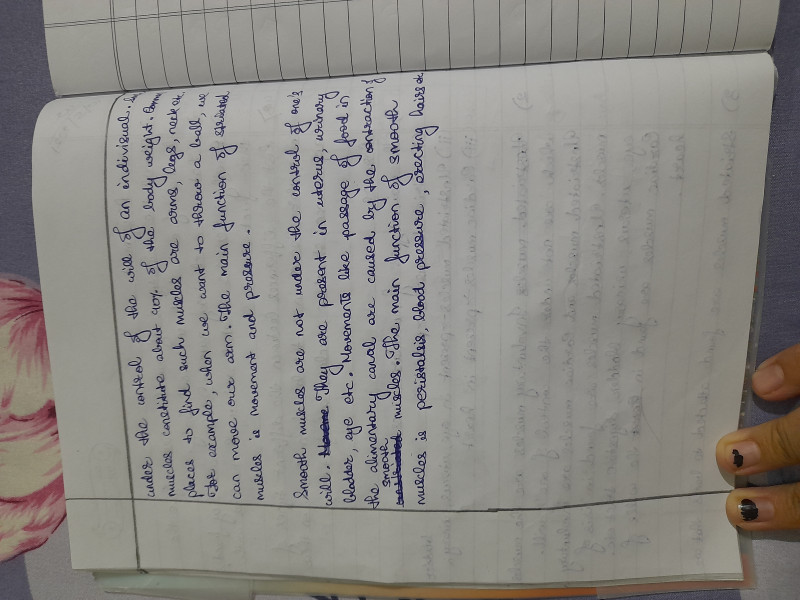 under the control of the will of an indivisual.
muscles constitute about 40% of the body weight. Comm
places to find such muscles are arms, legs, neck etc.
For example, when we want to throw a ball, we
can move our arm. The main function of striated
muscles is movement and pressure.
Smooth muscles are not under the control of one's
will. They are present in uterus, urinary
bladder, eye etc. Movements like passage of food in
the alimentary canal are caused by the contraction of
smooth muscles. The main function of smooth
muscles is peristalsis, blood pressure, erecting hairs etc